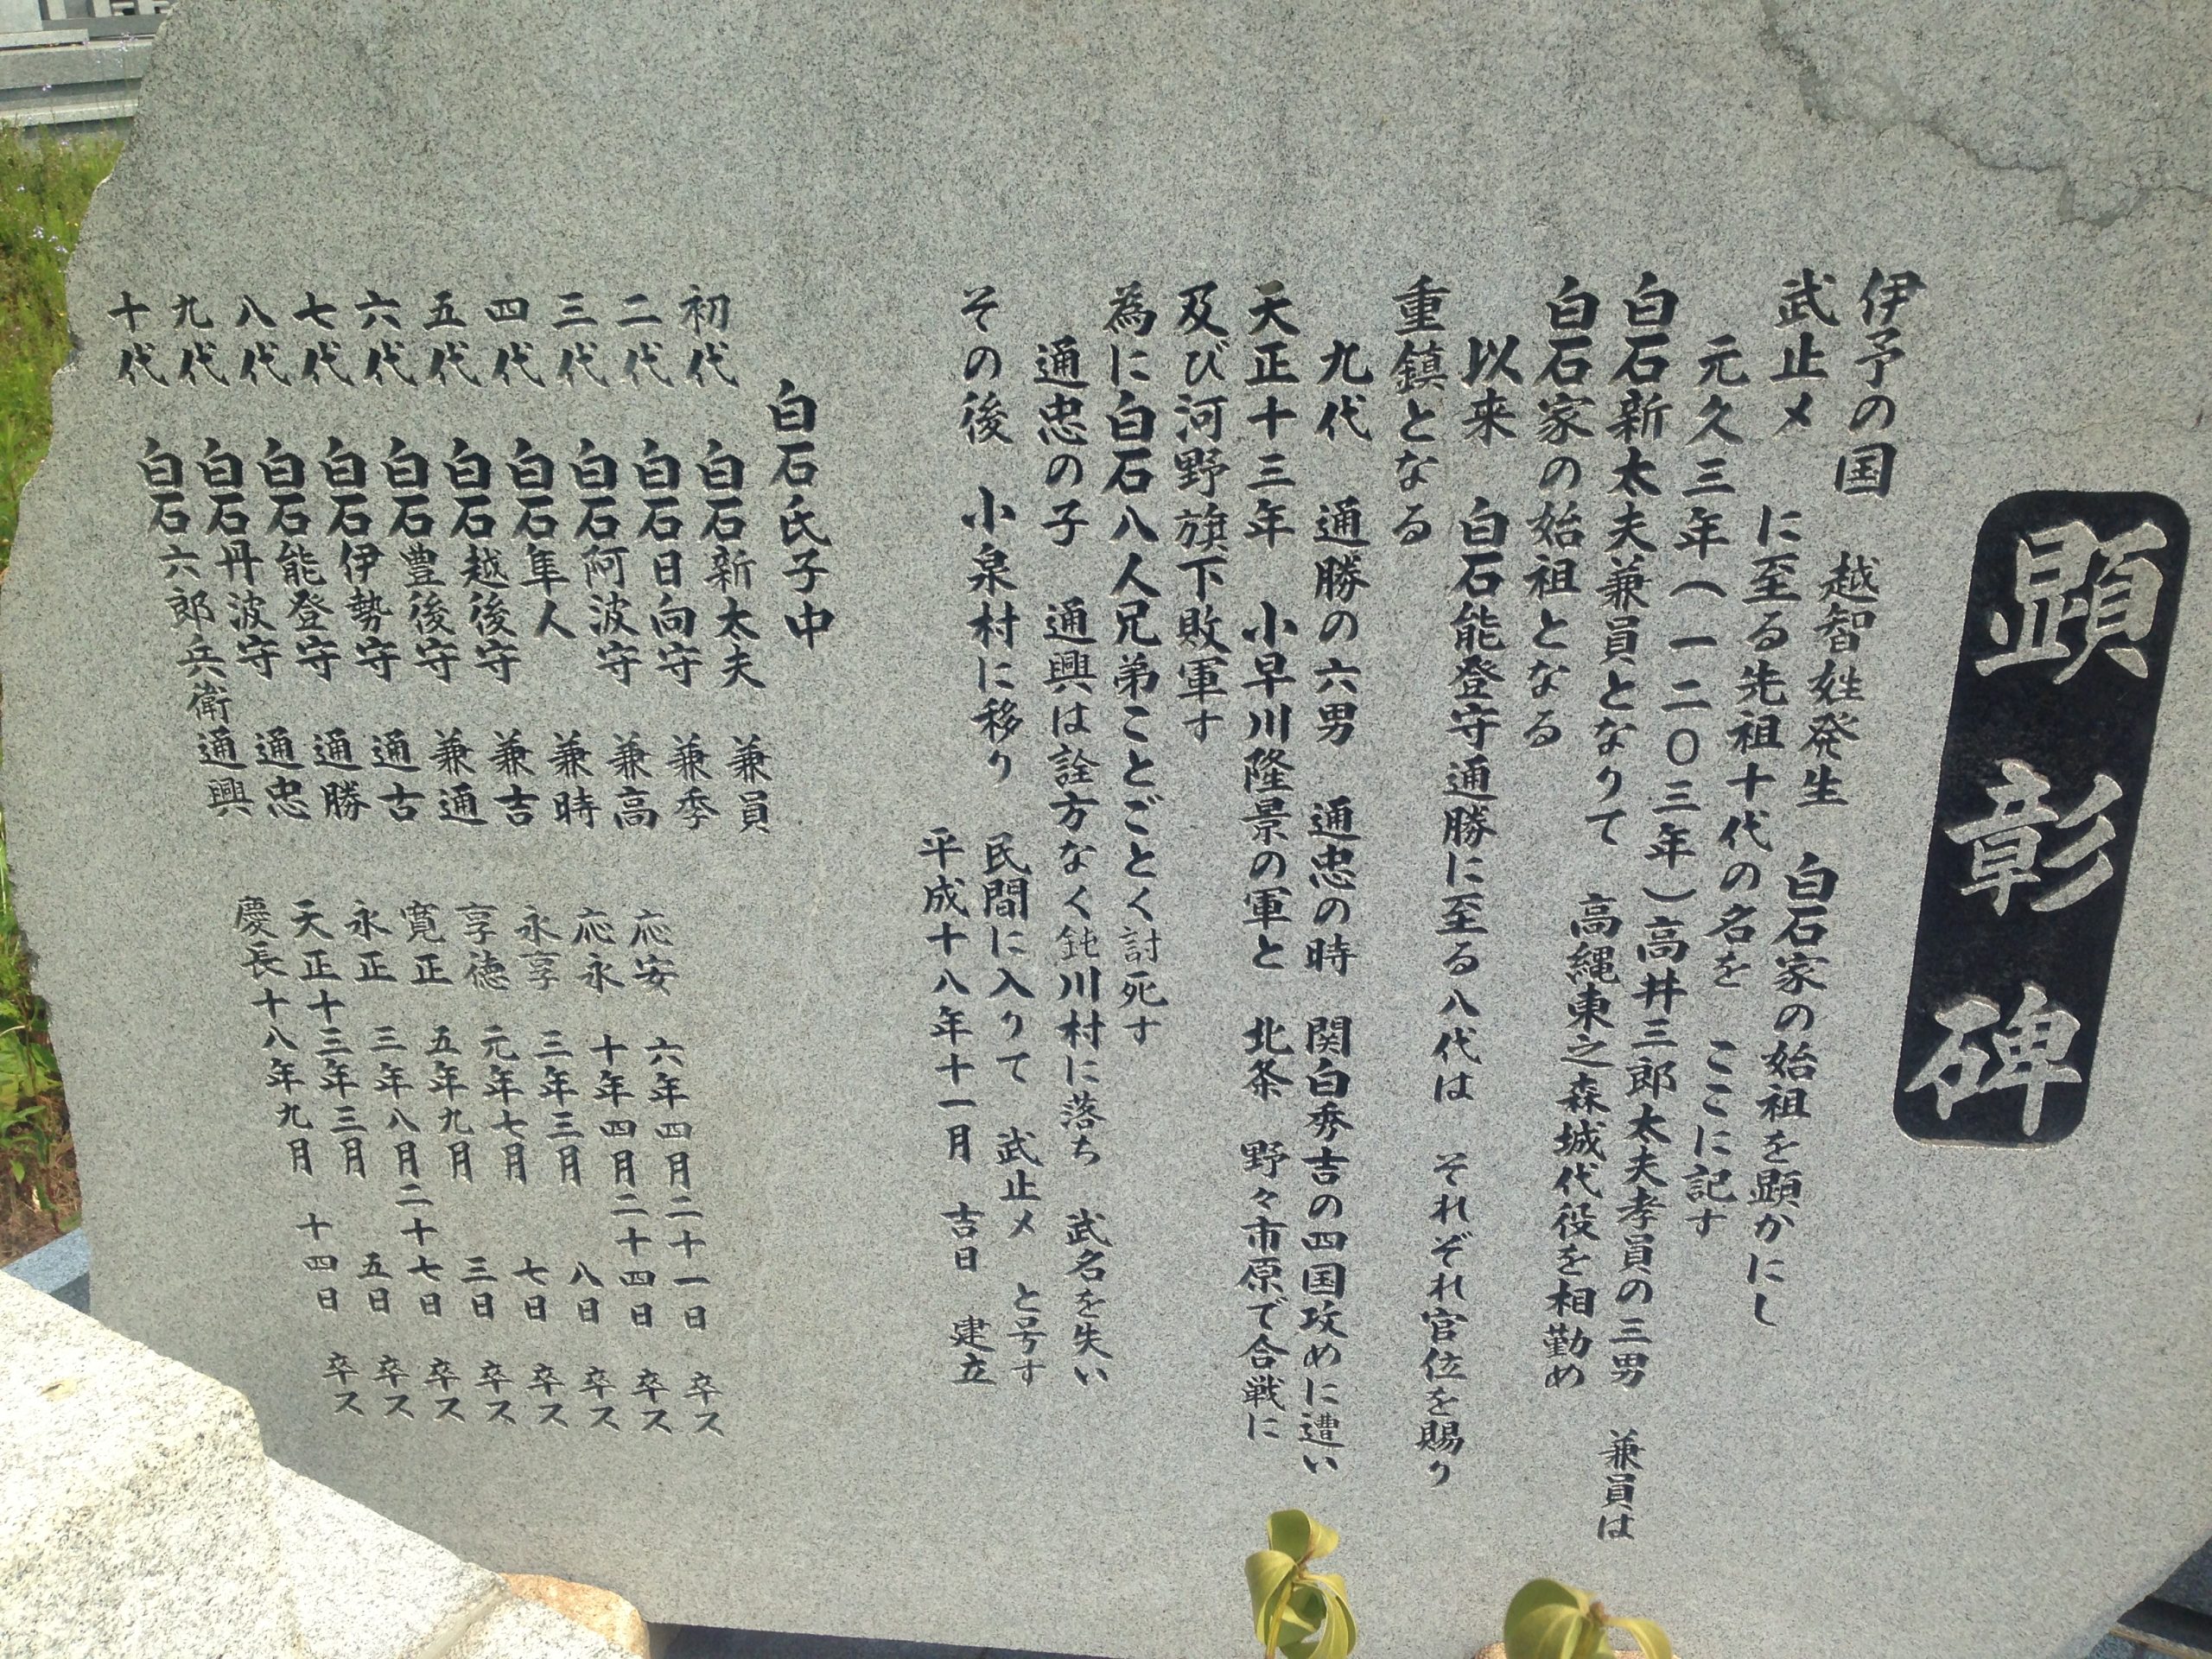 顕彰碑
伊予の国 越智姓発生 白石家の始祖を顕かにし
武止メ に至る先祖十代の名を ここに記す
元久三年(一二〇三年)高井三郎太夫孝員の三男 兼員は
白石新太夫兼員となりて 高縄東之森城代役を相勤め
白石家の始祖となる
以来 白石能登守通勝に至る八代は それぞれ官位を賜り
重鎮となる
九代 通勝の六男 通忠の時 関白秀吉の四国攻めに遭い
天正十三年 小早川隆景の軍と 北条 野々市原で合戦に
及び河野旗下敗軍す
為に白石八人兄弟ことごとく討死す
通忠の子 通興は詮方なく鈍川村に落ち 武名を失い
その後 小泉村に移り 民間に入りて 武止メ と号す
平成十八年十一月 吉日 建立
白石氏子中
初代 白石新太夫 兼員
二代 白石日向守 兼季
三代 白石阿波守 兼高 応安 六年四月二十一日 卒ス
四代 白石隼人 兼時 応永 十年四月二十四日 卒ス
五代 白石越後守 兼吉 永享 三年三月 八日 卒ス
六代 白石豊後守 兼通 享徳 元年七月 七日 卒ス
七代 白石伊勢守 通古 寛正 五年九月 三日 卒ス
八代 白石能登守 通勝 永正 三年八月二十七日 卒ス
九代 白石丹波守 通忠 天正十三年三月 五日 卒ス
十代 白石六郎兵衛 通興 慶長十八年九月 十四日 卒ス